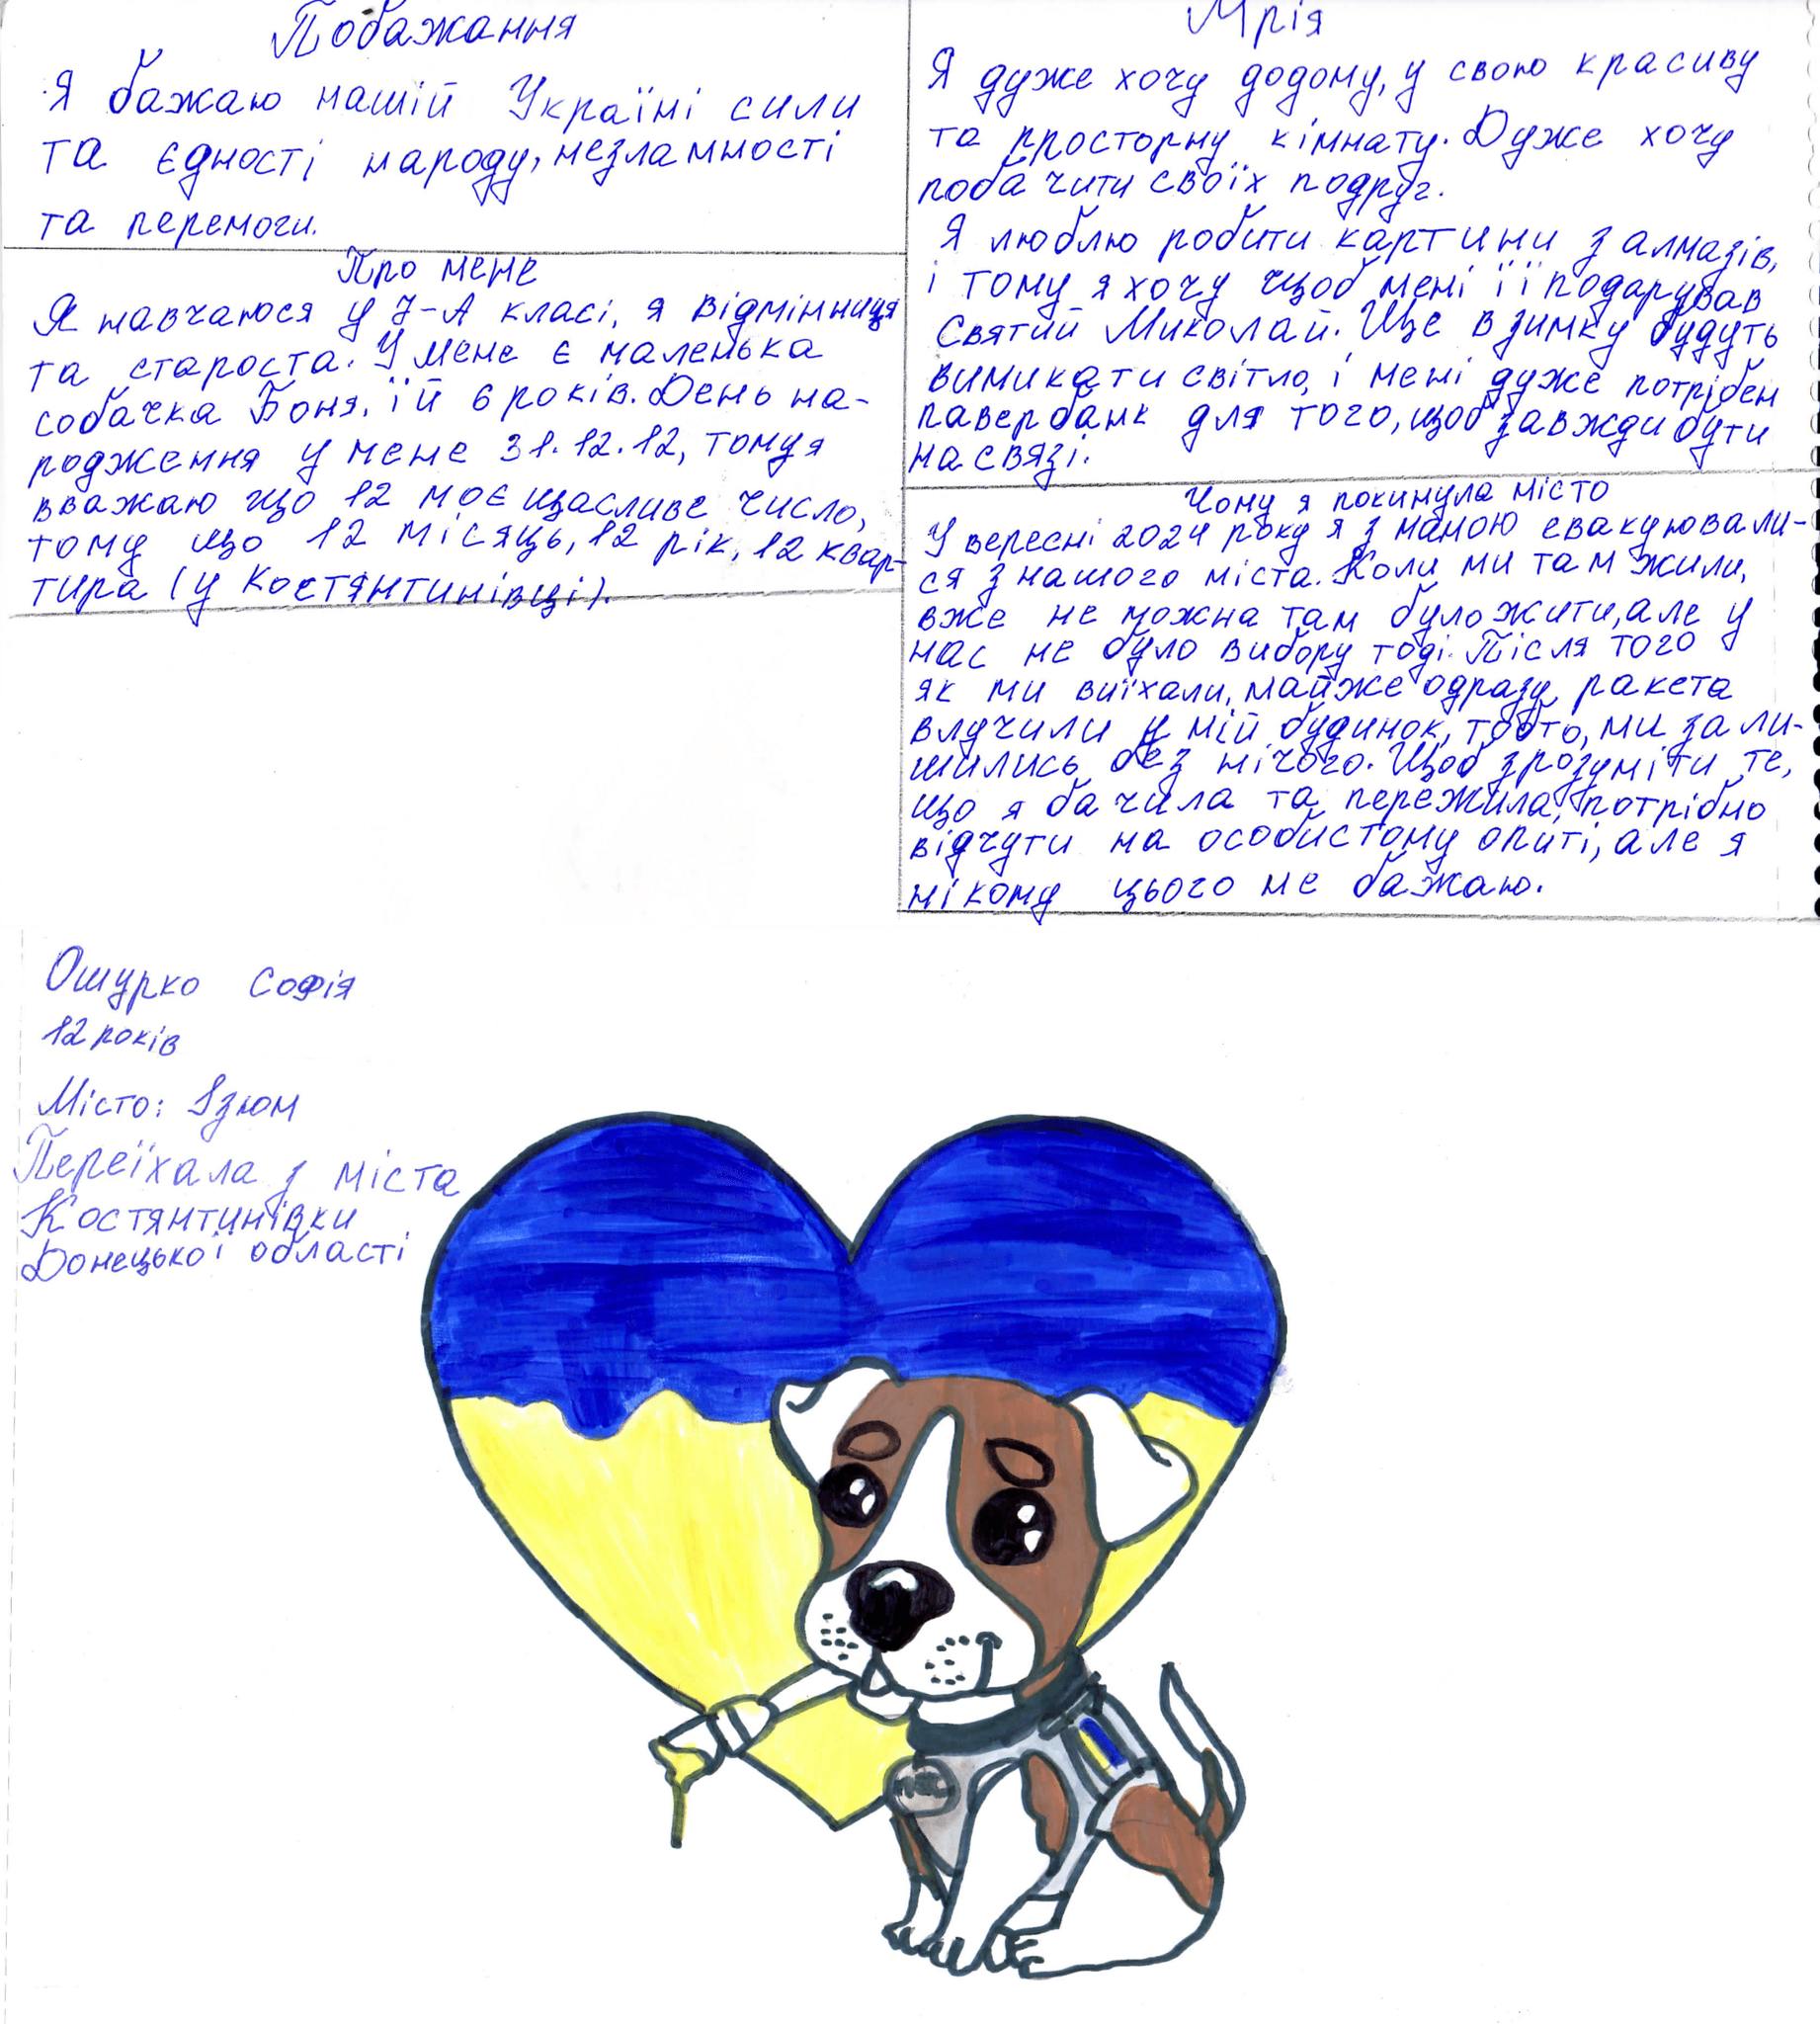 Побажання
Я бажаю нашій Україні сили
та єдності народу, незламності
та перемоги.
Про мене
Я навчаюся у 7-А класі, я відмінниця
та староста. У мене є маленька
собачка Боня, їй 6 років. День на-
родження у мене 31.12.12, тому я
вважаю що 12 моє щасливе число,
тому що 12 місяць, 12 рік, 12 квар-
тира (у Костянтинівці).
Мрія
Я дуже хочу додому, у свою красиву
та простору кімнату. Дуже хочу
побачити своїх подруг.
Я люблю робити картини з алмазів,
і тому я хочу щоб мені її подарував
Святий Миколай. Ще взимку будуть
вимикати світло, і мені дуже потрібен
павербанк для того, щоб завжди бути
на связі.
Чому я покинула місто
У вересні 2024 року я з мамою евакуювали-
ся з нашого міста. Коли ми там жили,
вже не можна там було жити, але у
нас не було вибору тоді. Після того
як ми виїхали, майже одразу ракета
влучили у мій будинок, тобто, ми зали-
шились без нічого. Щоб зрозуміти те,
що я бачила та пережила, потрібно
відчути на особистому опиті, але я
нікому цього не бажаю.
Ошурко Софія
12 років
Місто: Ізюм
Переїхала з міста
Костянтинівки
Донецької області